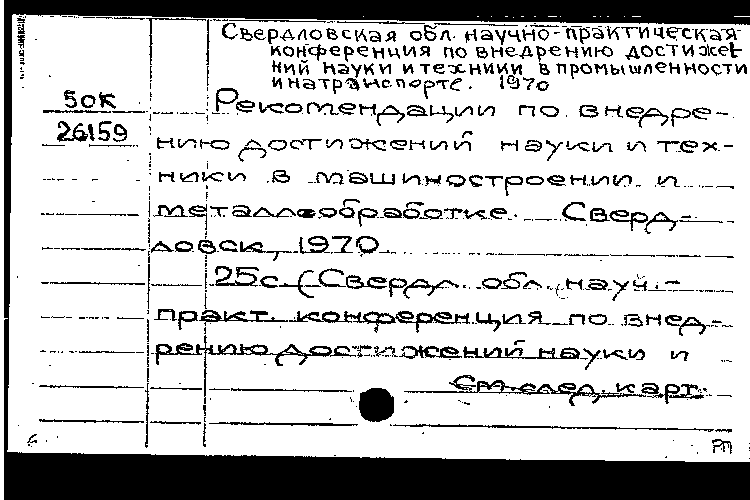 Свердловская обл. научно-практическая
конференция по внедрению достиже-
ний науки и техники в промышленности
и на транспорте. 1970
50К
26159
Рекомендации по внедре-
нию достижений науки и тех-
ники в машиностроении и
металлообработке. Сверд-
ловск, 1970
25с. (Свердл. обл. науч.-
практ. конференция по внед-
рению достижений науки и
См. след. карт.
РП